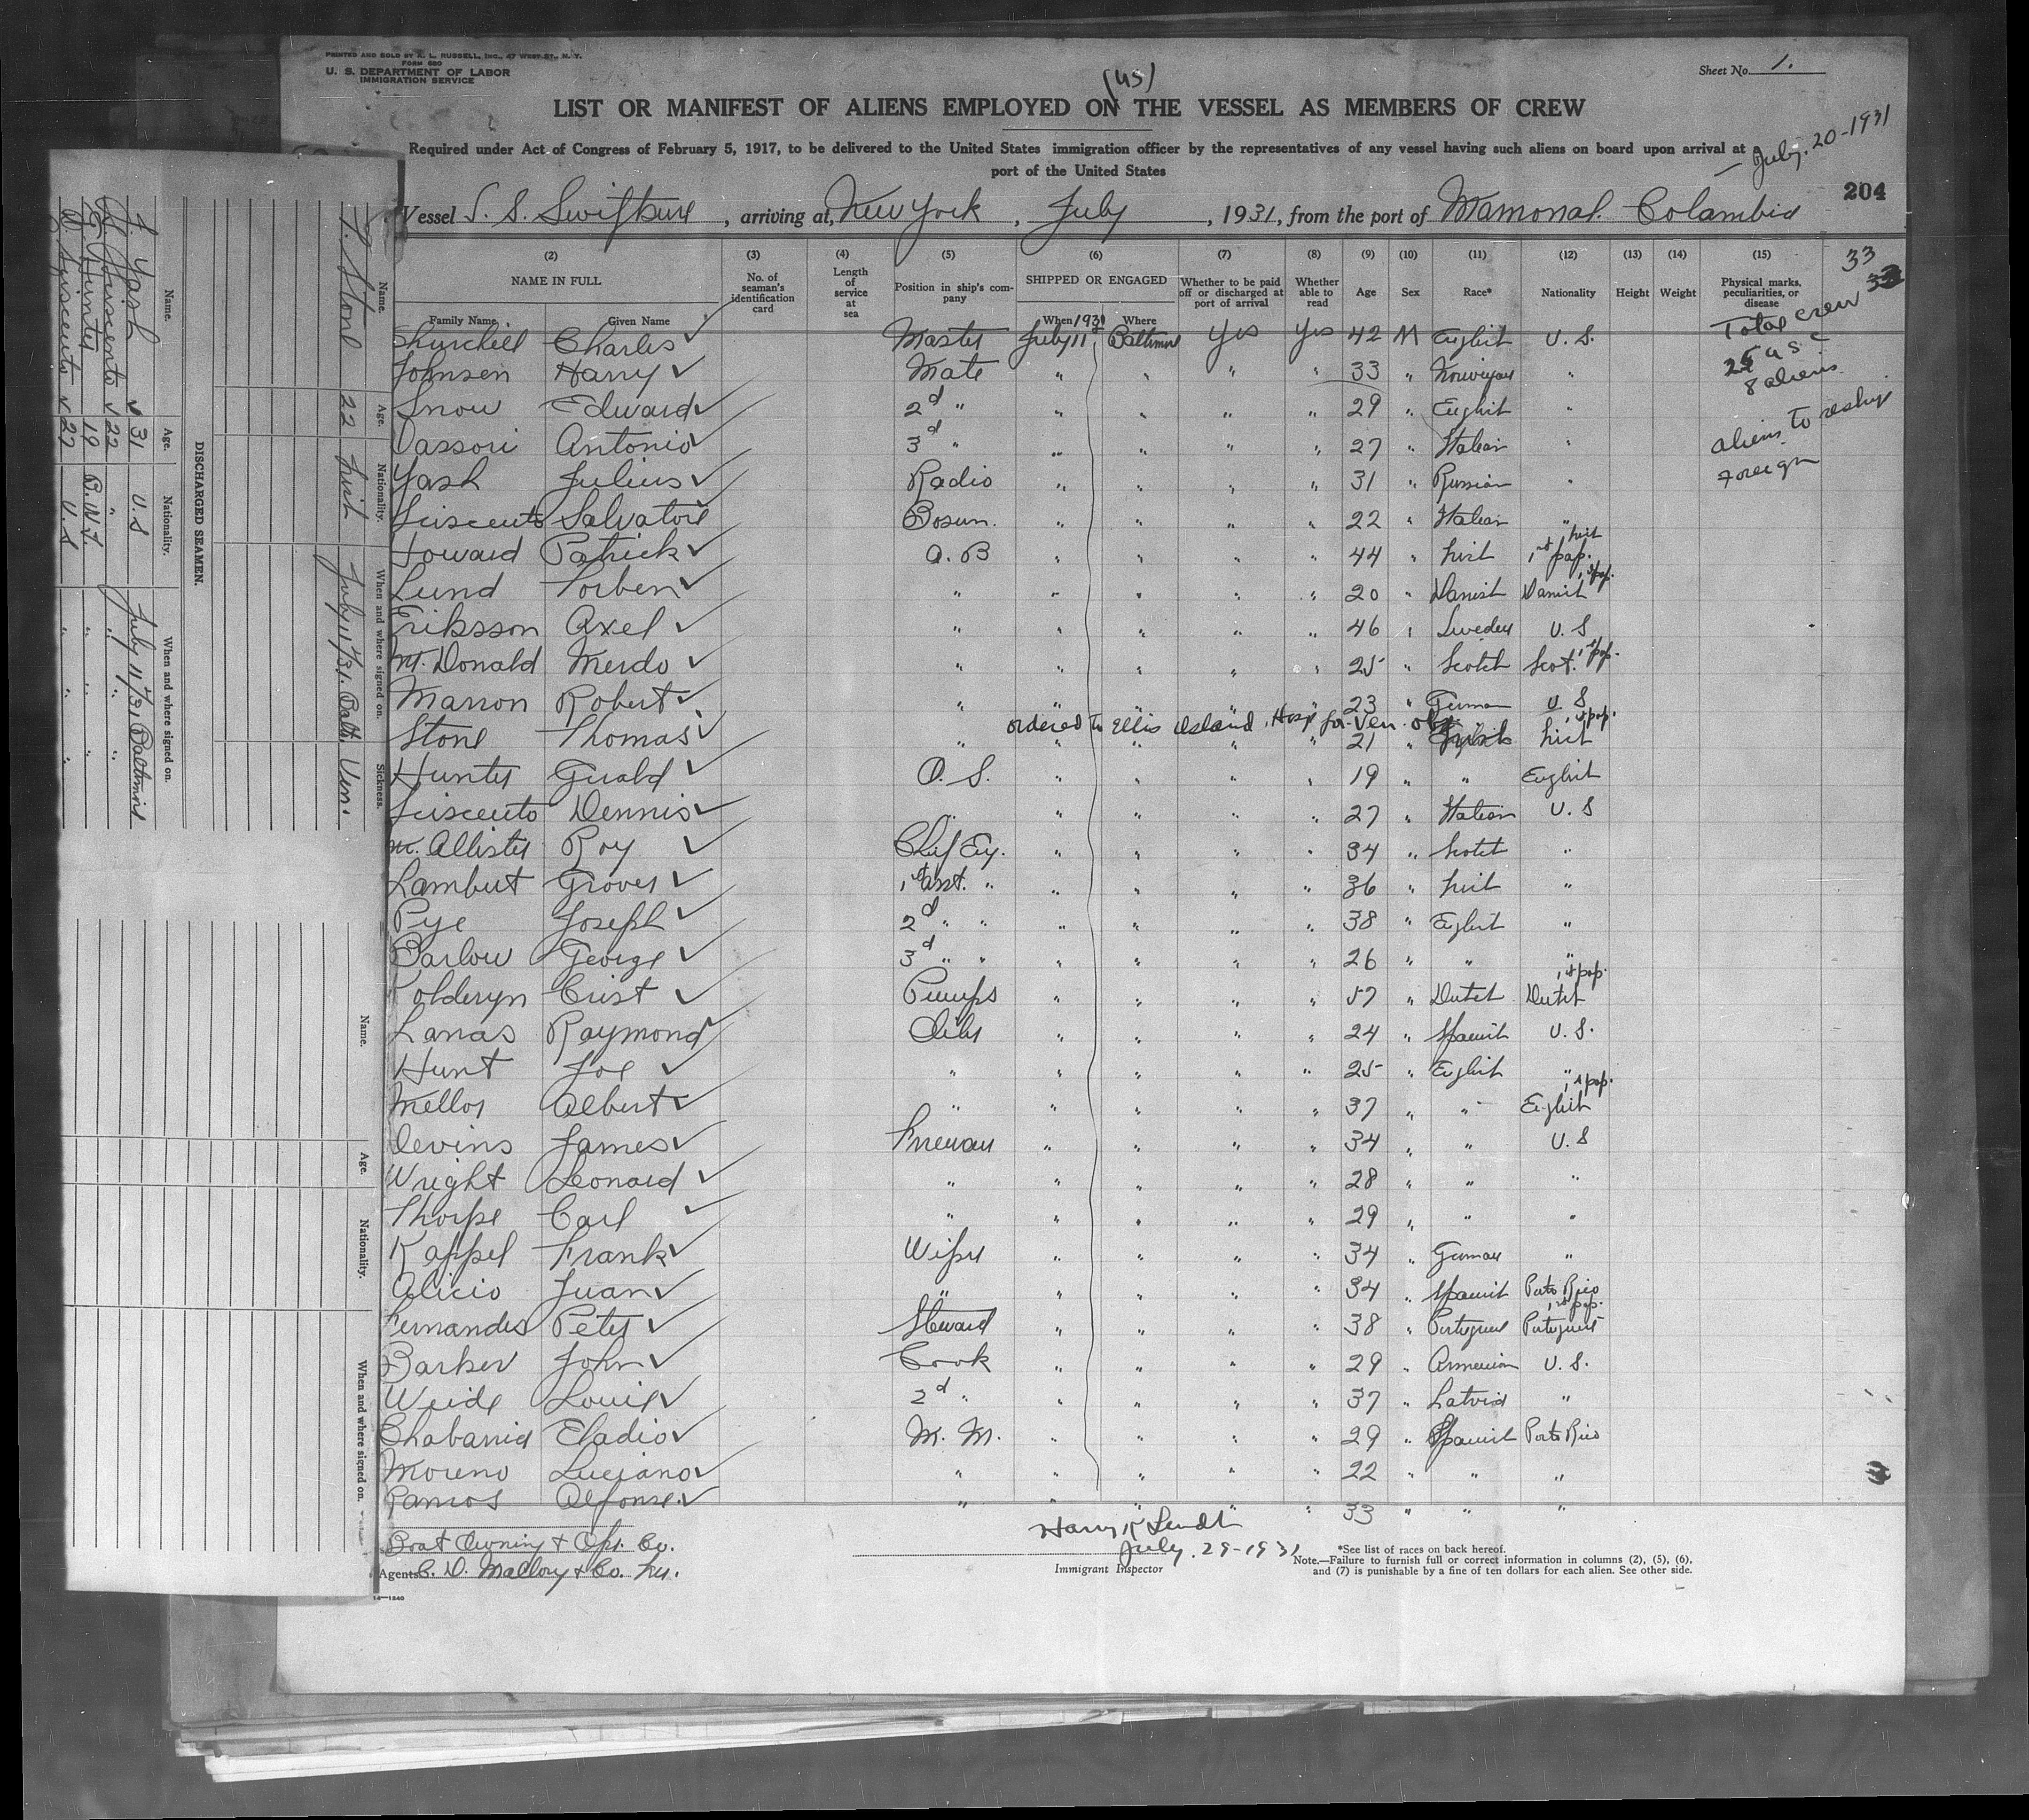 PRINTED AND SOLD BY A. L. RUSSELL, INC., 47 WEST ST., N. Y.
FORM 680
U. S. DEPARTMENT OF LABOR
IMMIGRATION SERVICE
(US)
Sheet No. 1.
LIST OR MANIFEST OF ALIENS EMPLOYED ON THE VESSEL AS MEMBERS OF CREW
Required under Act of Congress of February 5, 1917, to be delivered to the United States immigration officer by the representatives of any vessel having such aliens on board upon arrival at a
port of the United States
July. 20-1931
204
Vessel S. S. , arriving at New York, July, 1931, from the port of Mamonal. Colambia
(2) (3) (4) (5) (6) (7) (8) (9) (10) (11) (12) (13) (14) (15)
NAME IN FULL No. of seaman's identification card Length of service at sea Position in ship's company SHIPPED OR ENGAGED Whether to be paid off or discharged at port of arrival Whether able to read Age Sex Race* Nationality Height Weight Physical marks, peculiarities, or disease
Family Name Given Name When 1931 Where
33
Total crew 33
8 aliens
aliens to reship
foreign
Churchill Charles Master July 11 Baltimore Yes Yes 42 M English U. S.
Johnsen Harry Mate " " " " 33 " "
Snow Edward 2d " " " " " 29 " English "
Vassori Antonio 3d " " " " " 27 " Italian "
Yash Julius Radio " " " " 31 " Russian "
Salvatore Bosun. " " " " 22 " Italian "
Howard Patrick A. B " " " " 44 " Irish Irish 1st pap.
Lund Torben " " " " " 20 " Danish Danish 1st pap.
Eriksson Axel " " " " " 46 " U. S
Mc. Donald Merdo " " " " " 25 " Scotch Scot. 1st pap.
Marron Robert " " " " " 23 " German U. S
ordered to Ellis Island, Hosp for Ven.
Stone Thomas " " " " " 21 " Irish Irish 1st pap.
Hunter Gerald O. S. " " " " 19 " " English
Dennis " " " " " 27 " Italian U. S
Mc. Allister Roy Chief Eng. " " " " 34 " Scotch "
Lambert Grover 1st Asst. " " " " " 36 " Irish "
Pye Joseph 2d " " " " " " 38 " English "
Barlow George 3d " " " " " " 26 " " "
Kolderyn Crist Pumps " " " " 57 " Dutch Dutch 1st pap.
Lanas Raymond Oiler " " " " 24 " Spanish U. S.
Hunt Joe " " " " " 25 " English "
Mellor Albert " " " " " 37 " " English 1st pap.
Devins James Fireman " " " " 34 " " U. S
Wright Leonard " " " " " 28 " " "
Thorpe Carl " " " " " 29 " " "
Kappel Frank Wiper " " " " 34 " German "
Alicio Juan " " " " " 34 " Spanish Porto Rico
Fernandes Peter Steward " " " " 38 " Portuguese Portuguese 1st pap.
Barker John Cook " " " " 29 " Armenian U. S.
Weide Louis 2d " " " " " 37 " Latvia "
Eladio M. M. " " " " 29 " Spanish Porto Rico
Moreno Luciano " " " " " 22 " " "
Ramos Alfonse. " " " " " 33 " " "
Boat Owning & Opr. Co.
Agents C. D. Mallory & Co. Inc.
July. 29-1931
Immigrant Inspector
*See list of races on back hereof.
Note.—Failure to furnish full or correct information in columns (2), (5), (6),
and (7) is punishable by a fine of ten dollars for each alien. See other side.
14—1240
Name. Age. Nationality. When and where signed on. Sickness.
T. Stone 22 Irish July 11/31. Balt. Ven.
DISCHARGED SEAMEN.
Name. Age. Nationality. When and where signed on.
J. Yash 31 U. S July 11/31 Baltimore
22 " " "
G. Hunter 19 B. W. I " "
27 U. S " "
Name. Age. Nationality. When and where signed on.